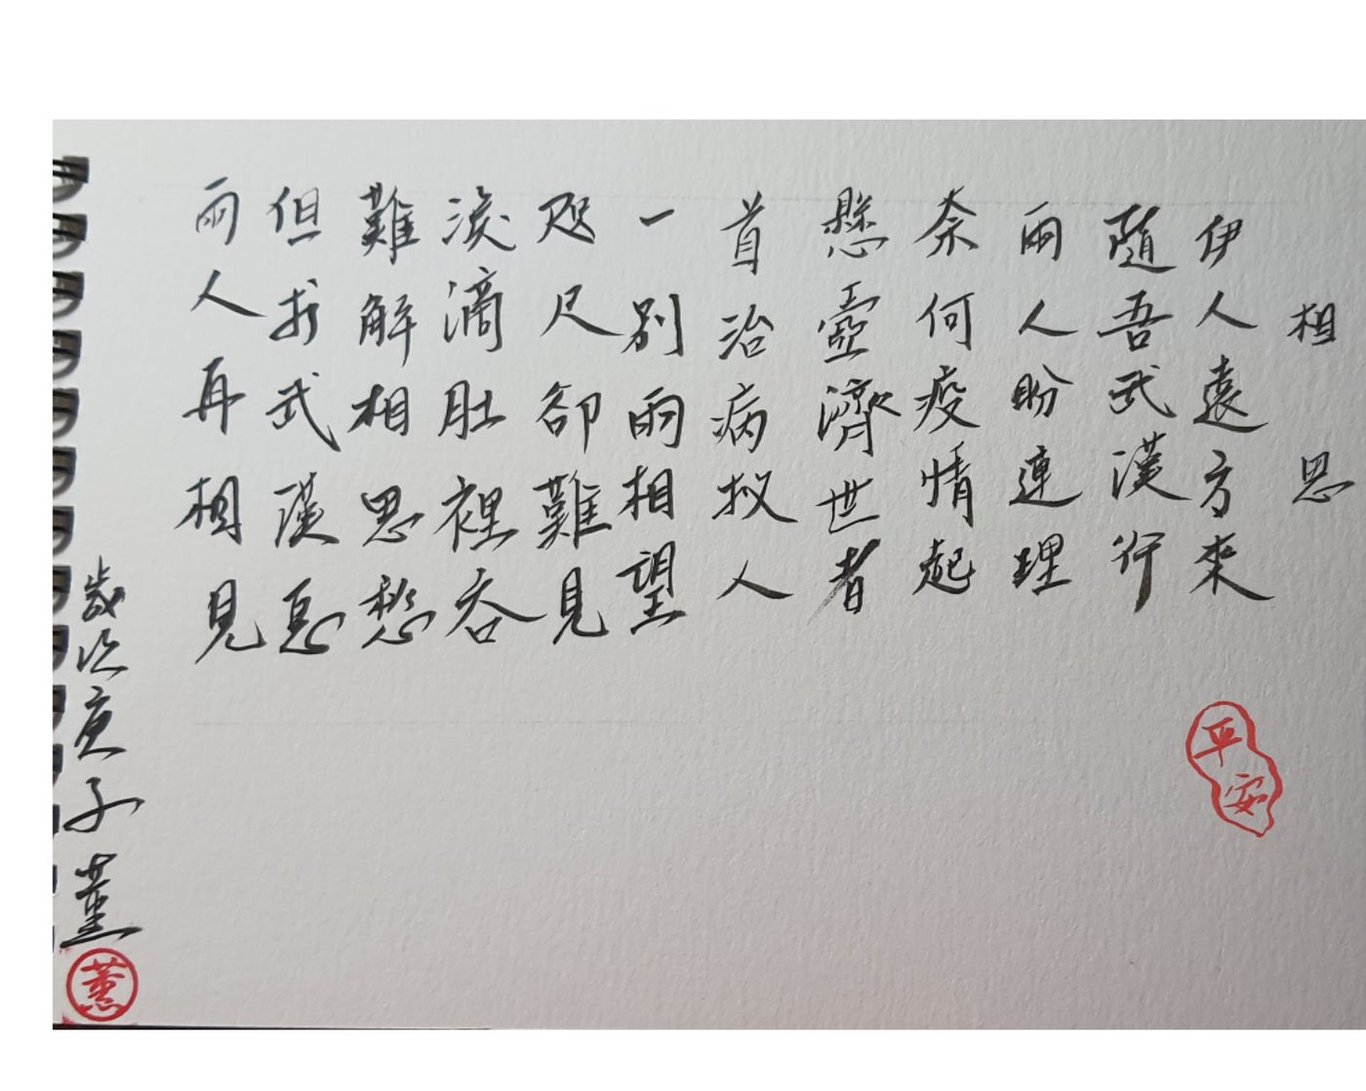 相思
伊人遠方來
隨吾武漢行
兩人盼連理
奈何疫情起
懸壺濟世者
首治病救人
一別兩相望
咫尺卻難見
淚滴肚裡吞
難解相思愁
但於武漢息
兩人再相見
歲次庚子
平安